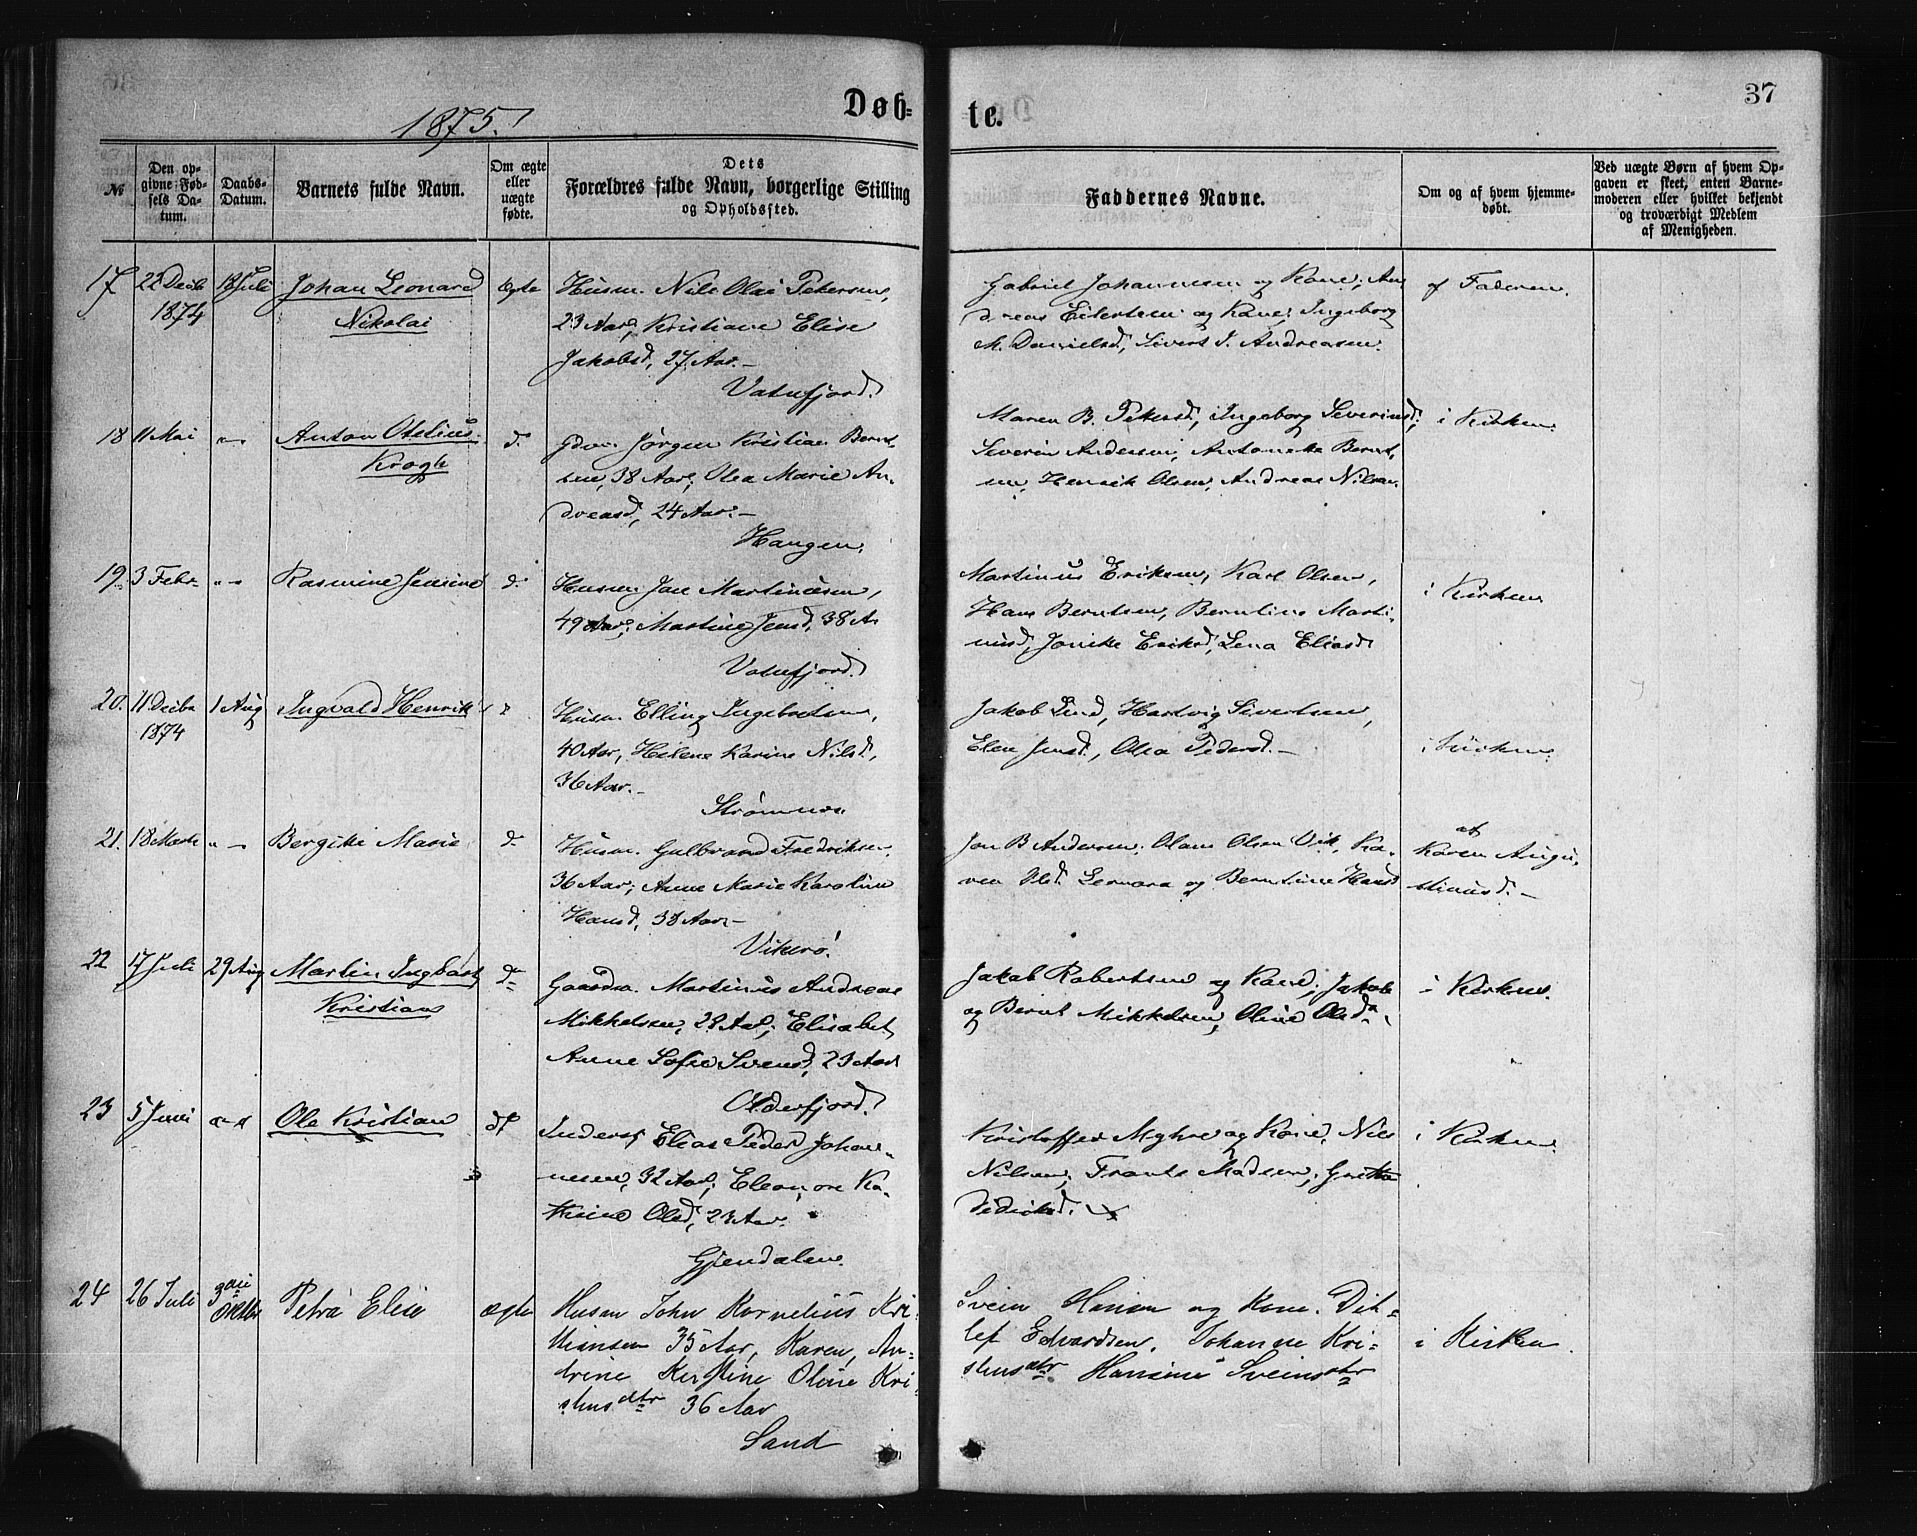 1875.
Døb-
te.
37
№
Den op-
givne Fød-
sels Da-
tum.
Daabs-
Datum.
Barnets fulde Navn.
Om ægte
eller
uægte
fødte.
Dets
Forældres fulde Navn, borgerlige Stilling
og Opholdssted.
Faddernes Navne.
Om og af hvem hjemme-
døbt.
Ved uægte Børn af hvem Op-
gaven er skeet, enten Barne-
moderen eller hvilket bekjendt
og troværdigt Medlem
af Menigheden.
17 22 Decbr 1874 18 Juli
Johan Leonard
Nikolai
ægte
Husm. Nils Olai Petersen,
23 Aar, Kristiane Elise
Jakobsd, 27 Aar.–
Vatnfjord.
Gabriel Johannesen og Kone, An-
dreas Eilertsen og Kone, Ingeborg
M. Danielsd, Sivert J. Andreasen.
af Faderen.
18 11 Mai " –
Anton Otelius
Krogh
d.
Gdm. Jørgen Kristian Bernt-
sen, 38 Aar, Olea Marie An-
dreasd, 24 Aar.–
Haugen.
Maren B. Petersd, Ingeborg Severinsd,
Severin Andersen, Antoneta Bernt-
sen, Henrik Olsen, Andreas Nilsen.
i Kirken.
19. 3 Febr " –
Rasmine Jensine
d.
Husm. Jon Martinusen,
49 Aar, Martine Jensd, 38 A.
Vatnfjord.
Martinus Eriksen, Karl Olsen,
Hans Berntsen, Berntine Marti-
nusd, Jonike Eriksd, Lena Eliasd
i Kirken
20. 11 Decbr 1874 1 Aug
Ingvald Henrik
Husm. Elling Ingebretsen,
40 Aar, Helene Karine Nilsd,
36 Aar.–
Strømnes.
Jakob Lind, Hartvig Sivertsen,
Elen Jensd, Olea Pedersd.–
i Kirken.
21. 18 Marts " –
Bergitte Marie
d.
Husm. Gulbrand Fredriksen,
36 Aar, Anne Marie Karoline
Hansd, 38 Aar.–
Vikerø.
Jon B Andersen, Olaus Olsen Vik, Ka-
ren Olsd. og Berntine Hansd
af
Karen Augu-
stinusd.–
22 17 Juli 29 Aug
Martin Ingbart
Kristian
d.
Gaardm. Martinus Andreas
Mikkelsen, 28 Aar, Elisabet
Anne Sofie Svensd, 23 Aar
Olderfjord.
Jakob Robertsen og Kone, Jakob
og Bernt Mikkelsen, Oline Olsd.
i Kirken.
23 5 Juni
Ole Kristian
Inders. Elias Peder Johan-
nesen, 32 Aar, Eleonore Ka-
trine Olsd, 23 Aar.
Gjendalen.
Kristoffer Myhre og Kone, Nils
Nilsen, Frants Madsen, Grethe
Didriksd.
i Kirken.
24 26 Juli 3die Oktbr
Petra Elise
ægte
Husm John Kornelius Kri-
stiansen 35 Aar, Karen, An-
drine Kirstine Oline Kri-
stensdtr 36 Aar
Sand
Svein Hansen og Kone. Dit-
lef Edvardsen, Johanne Kri-
stensdtr Hansine Sveinsdtr
i Kirken.